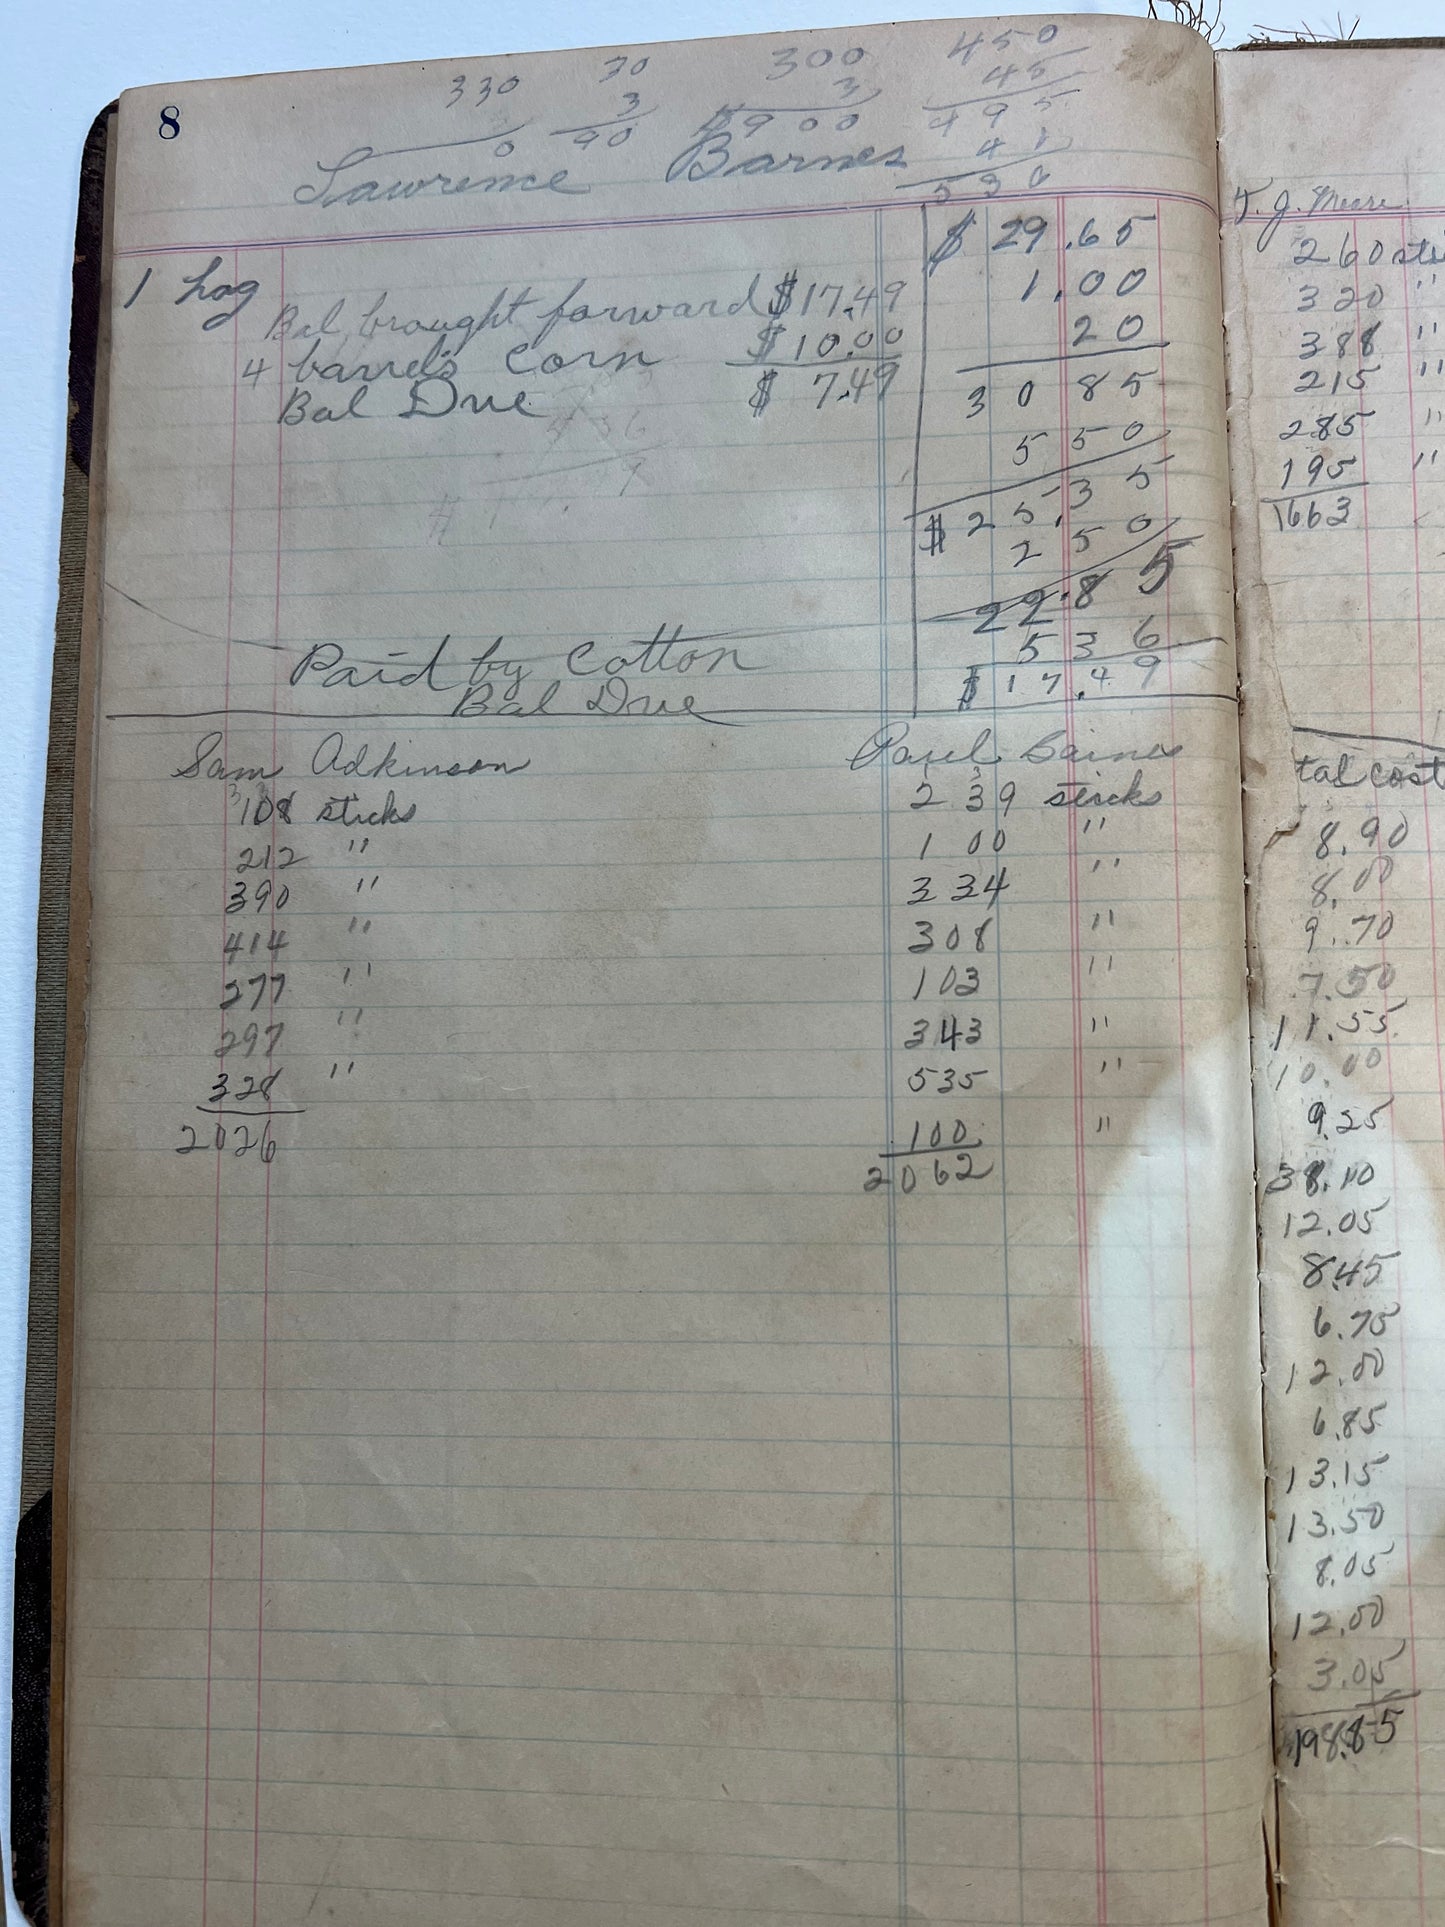 8
330 70 300 450
3 3 45
0 90 $900 495
41
536
Lawrence Barnes
$ 29.65
1 hog 1.00
Bal brought forward $17.49 20
4 barrels corn $10.00 30 85
Bal Due $7.49 5 50
$25.35
2 50
22.85
Paid by Cotton 5 36
Bal Due $17.49
Sam Adkinson
108 sticks
212 "
390 "
414 "
277 "
297 "
328 "
2026
Paul Baines
239 sticks
100 "
334 "
308 "
103 "
343 "
535 "
100 "
2062
J. Moore
260 sti
320 "
388 "
215 "
285 "
195 "
1663
tal cost
8.90
8.00
9.70
7.50
11.55
10.00
9.25
38.10
12.05
8.45
6.75
12.00
6.85
13.15
13.50
8.05
12.00
3.05
198.85